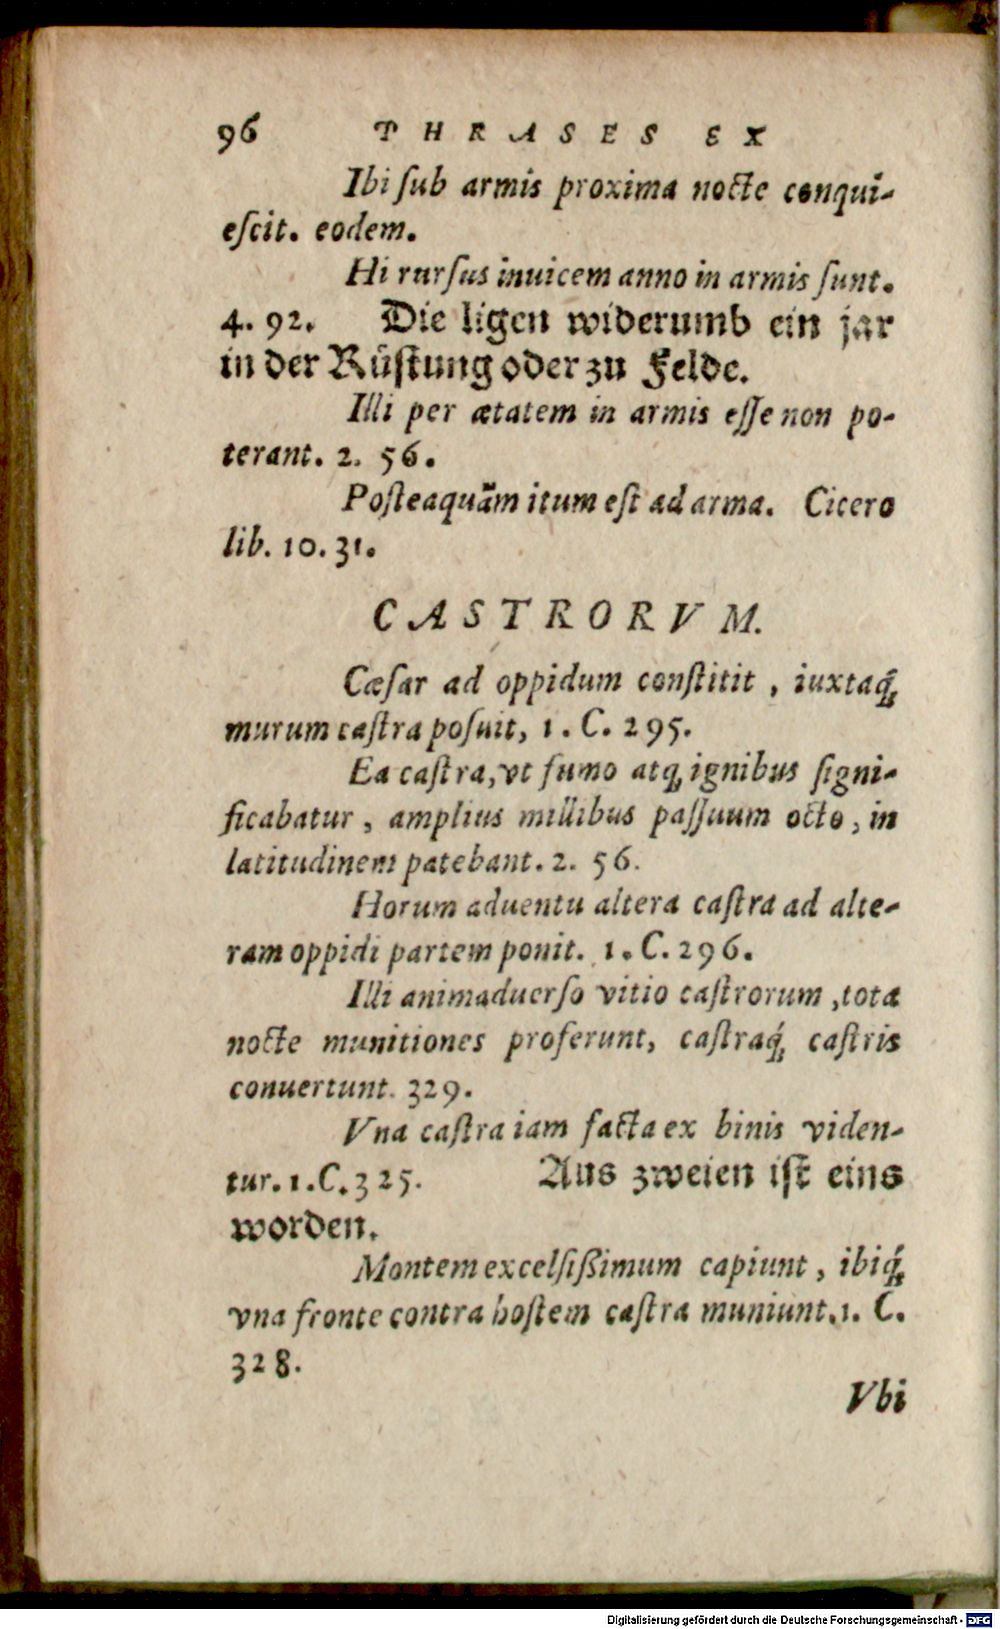 96 THRASES EX
Ibi ſub armis proxima nocte conqui-
eſcit. eodem.
Hi rurſus inuicem anno in armis ſunt.
4. 92. Die ligen widerumb ein jar
in der Rüſtung oder zu Felde.
Illi per ætatem in armis eſſe non po-
terant. 2. 56.
Poſteaquãm itum eſt ad arma. Cicero
lib. 10. 31.
CASTRORVM.
Cæſar ad oppidum conſtitit, iuxtaq́;
murum caſtra poſuit, 1. C. 295.
Ea caſtra, vt fumo atq; ignibus ſigni-
ficabatur, amplius millibus paſſuum octo, in
latitudinem patebant. 2. 56.
Horum aduentu altera caſtra ad alte-
ram oppidi partem ponit. 1. C. 296.
Illi animaduerſo vitio caſtrorum, tota
nocte munitiones proferunt, caſtraq́; caſtris
conuertunt. 329.
Vna caſtra iam facta ex binis viden-
tur. 1. C. 325. Aus zweien iſt eins
worden.
Montem excelſißimum capiunt, ibiq́;
vna fronte contra hoſtem caſtra muniunt. 1. C.
328.
Vbi
Digitalisierung gefördert durch die Deutsche Forschungsgemeinschaft - DFG